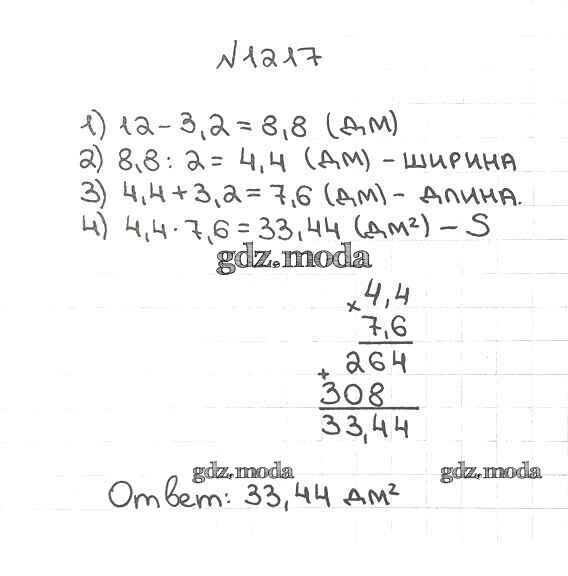 №1217
1) 12 - 3,2 = 8,8 (дм)
2) 8,8 : 2 = 4,4 (дм) - ширина
3) 4,4 + 3,2 = 7,6 (дм) - длина.
4) 4,4 · 7,6 = 33,44 (дм²) - S
gdz.moda
× 4,4
7,6
+ 264
308
33,44
gdz.moda gdz.moda
Ответ: 33,44 дм²